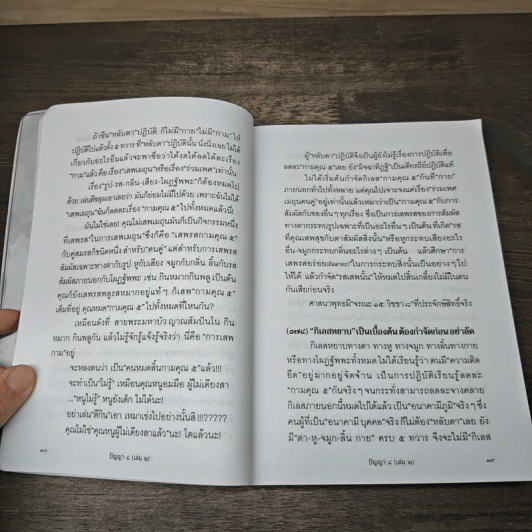 ถ้าขืน"หลับตา"ปฏิบัติ ก็ไม่มี"กาย"ไม่มี"กาม"ให้
ปฏิบัติไปแล้วตั้ง ๕ ทวาร ที่"หลับตา"ปฏิบัตินั้น นั่งนิ่งเฉย ไม่ได้
เกี่ยวกับอะไรอื่นแล้วจะพาซื่อว่าได้งดได้ลดได้ละเรื่อง
"กาม"แล้ว คือเรื่อง"เสพเมถุน"หรือเรื่อง"ร่วมเพศ"เท่านั้น
เรื่อง"รูป-รส-กลิ่น-เสียง-โผฏฐัพพะ"ก็ต้องหมดไป
ด้วย เล่นตีขลุมเอาเลยว่า มันก็ย่อมไม่มีไปด้วย เพราะฉันไม่ได้
"เสพเมถุน"ฉันก็ลดละเรื่อง "กามคุณ ๕" ไปทั้งหมดแล้วนี่!
มันไม่ใช่เลย! คุณไม่เสพเมถุนมันก็เป็นกิจกรรมหนึ่ง
ที่เสพรส"ในการเสพเมถุน"ซึ่งก็คือ "เสพรสกามคุณ ๕"
กับคู่สมรสก็ชนิดหนึ่ง สำหรับ"คนคู่" แต่สำหรับการเสพรส
สัมผัสเฉพาะทางตากับรูป หูกับเสียง จมูกกับกลิ่น ลิ้นกับรส
สัมผัสภายนอกกับโผฏฐัพพะ เช่น กินหมากกินพลู เป็นต้น
คุณก็ยังเสพรสพลูรสหมากอยู่แท้ๆ ก็เสพ"กามคุณ ๕"
เต็มที่อยู่ คุณหมด"กามคุณ ๕"ไปทั้งหมดที่ไหนกัน?
เหมือนดังที่ สายพระมหาบัว ญาณสัมปันโน กิน
หมาก กินพลูกัน แล้วไม่รู้จักรู้แจ้งรู้จริงว่า นี่คือ "การเสพ
กาม"อยู่
จะหลงตนว่า เป็น"คนหมดสิ้นกามคุณ ๕"แล้ว!!!
จะทำเป็น"ไม่รู้" เหมือนคุณหนูอมมือ ผู้ไม่เดียงสา
..."หนูไม่รู้" หนูยังเด็ก ไม่ได้นะ!
อย่าเล่น"ตีกิน"เอา เหมาเข่งไปอย่างนั้นสิ!!!?????
คุณไม่ใช่"คุณหนูผู้ไม่เดียงสาแล้ว"นะ! โตแล้วนะ!
๑๘
ปัญญา ๘ (เล่ม ๒)
ผู้"หลับตา"ปฏิบัติจึงเป็นผู้ยังไม่รู้เรื่องการปฏิบัติเพื่อ
ลดละ"กามคุณ ๕"เลย ยัง"มิจฉาทิฏฐิ"เป็นเดียรถีย์ปฏิบัติแท้
ไม่ได้เริ่มต้นกำจัดกิเลส"กามคุณ ๕"กันที่"กาย"
ภายนอกทั่วไปทั้งหลาย แต่คุณไปเจาะจงแค่เรื่อง"ร่วมเพศ
เมถุนคนคู่"อยู่เท่านั้นแล้วเหมาว่าเป็น"กามคุณ ๕"กับการ
สัมผัสกับของอื่นๆ ทุกเรื่อง ซึ่งเป็นการเสพรสของการสัมผัส
ทางตากระทบรูปเฉพาะที่เป็นอะไรอื่นๆ เป็นต้น ที่เกิด"รส
ที่คุณเสพสุขกับตาสัมผัสสิ่งนั้น"หรือหูกระทบเสียงอะไร
อื่น-จมูกกระทบกลิ่นอะไรอื่นๆ เป็นต้น แล้วศึกษา"การ
เสพรสอร่อย(อัสสาทะ)"ในการกระทบสิ่งนั้นเป็นอย่างๆ ไป
ให้ได้ แล้วกำจัด"รสเสพนั้น"ให้หมดไปสิ้นเกลี้ยงไม่มีในตน
กันเสียก่อนจริง
ศาสนาพุทธมี"จรณะ ๑๕ วิชชา ๘"ที่ประจักษ์สิทธิ์จริง
(๐๗๔) "กิเลสหยาบ"เป็นเบื้องต้น ต้องกำจัดก่อน อย่าลัด
กิเลสหยาบทางตา ทางหู ทางจมูก ทางลิ้นทางกาย
หรือทางโผฏฐัพพะทั้งหมดไม่ได้เรียนรู้ว่า ตนมี"ความติด
ยึด"อยู่มากอยู่จัดจ้าน เป็นการปฏิบัติเรียนรู้ลดละ
"กามคุณ ๕"กันจริงๆ จนกระทั่งสามารถลดละจางคลาย
กิเลสภายนอกนี้หมดไปได้แล้ว เป็น"อนาคามีภูมิ"จริงๆ ซึ่ง
คนผู้ที่เป็น"อนาคามี บุคคล"จริง ก็ไม่ต้อง"หลับตา"เลย ยัง
มี"ตา-หู-จมูก-ลิ้น กาย" ครบ ๕ ทวาร จึงจะไม่มี"กิเลส
ปัญญา ๘ (เล่ม ๒)
๑๙